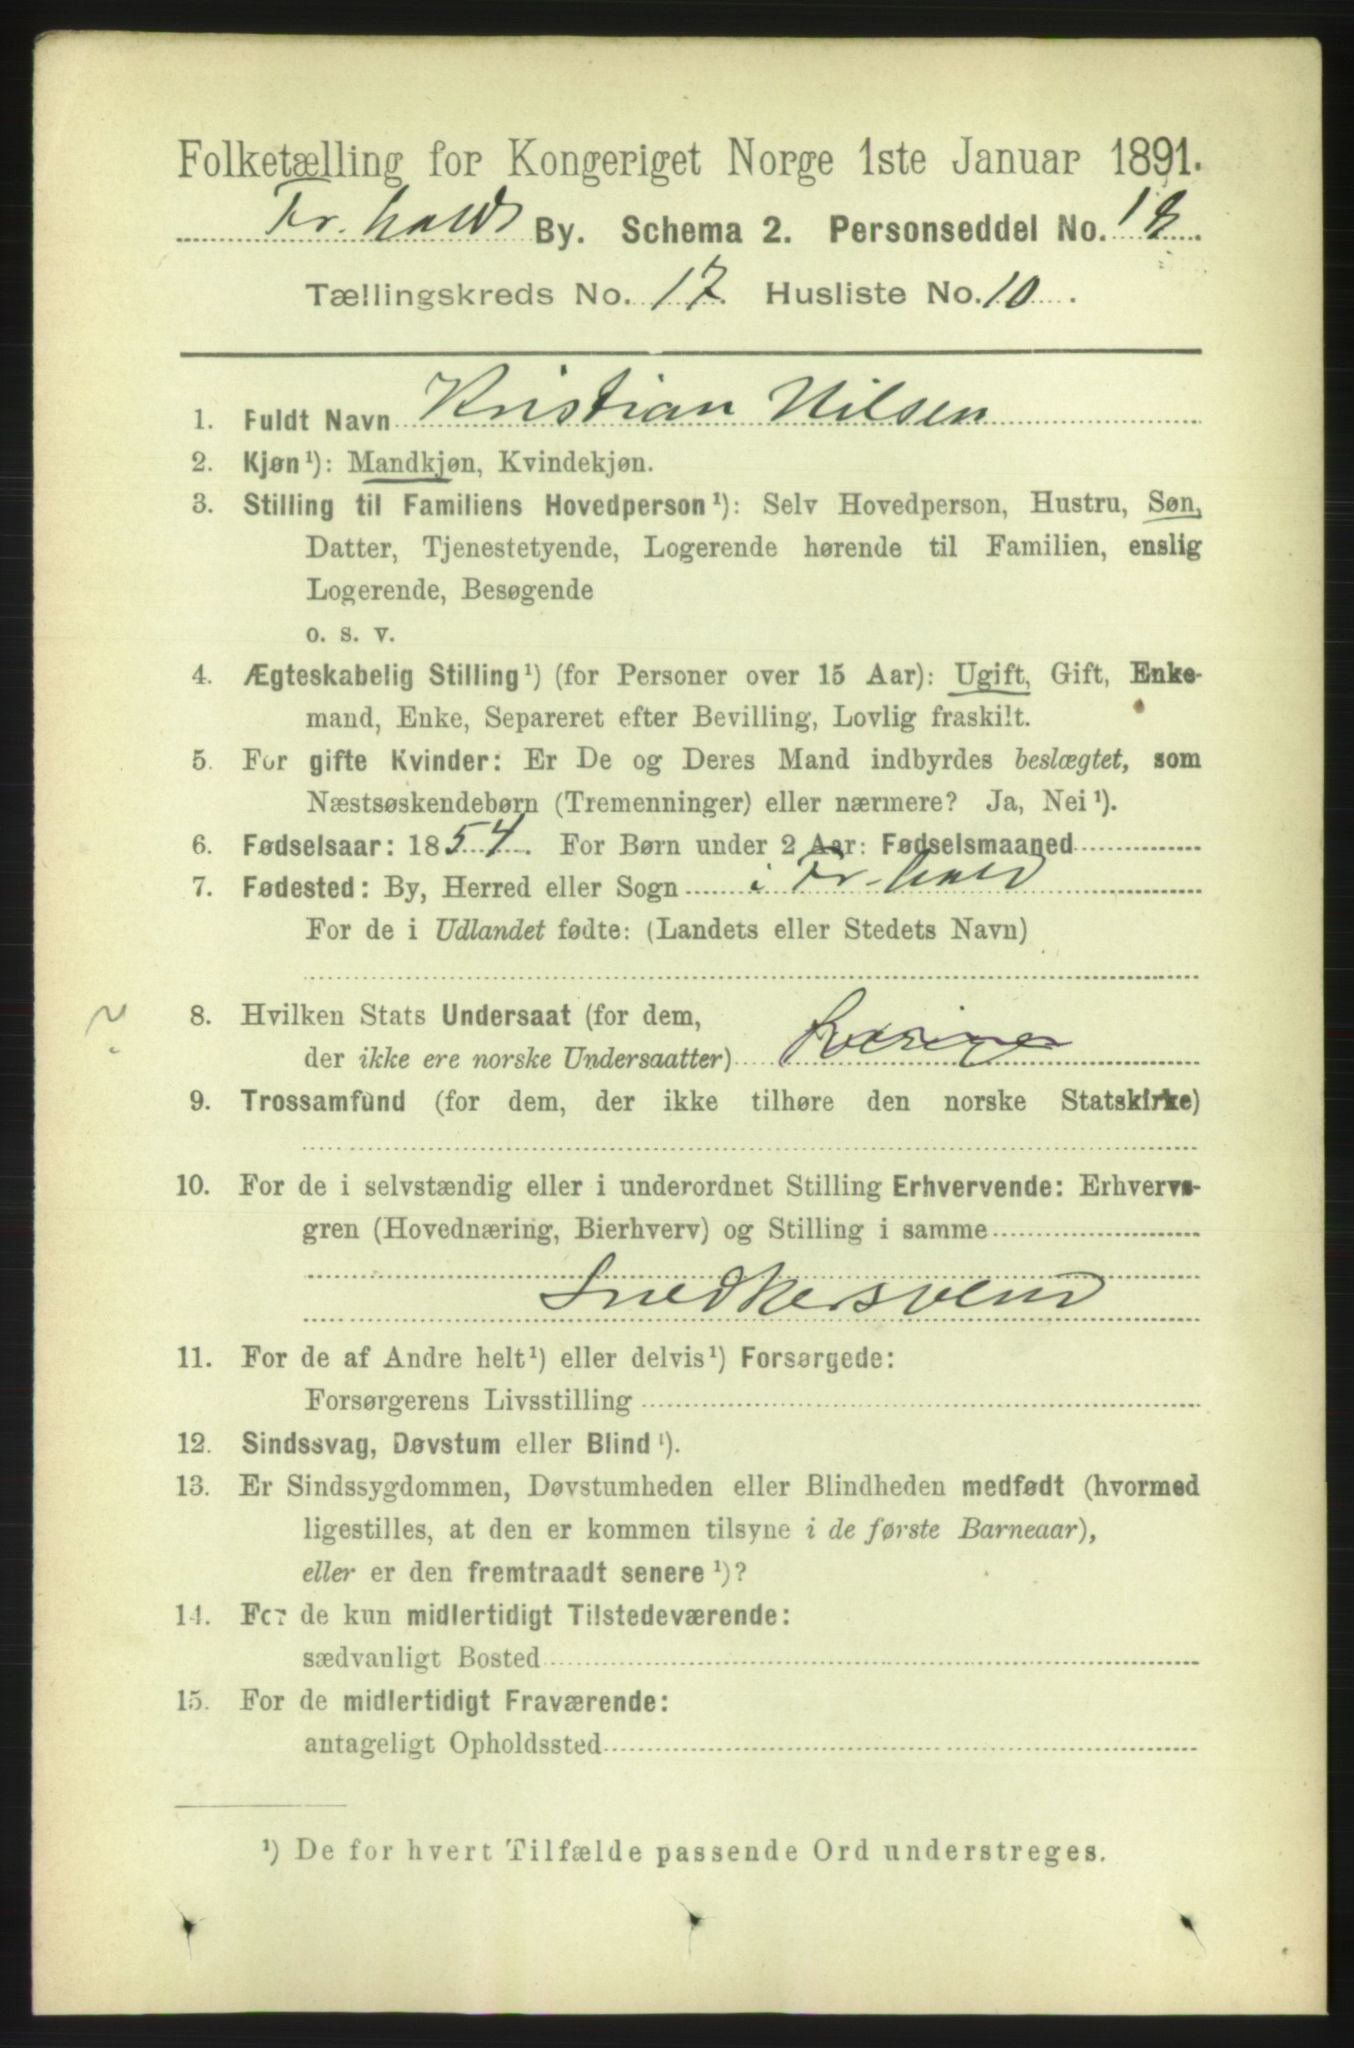 Folketælling for Kongeriget Norge 1ste Januar 1891.
Fr.halds By. Schema 2. Personseddel No. 18.
Tællingskreds No. 17. Husliste No. 10.
1. Fuldt Navn Kristian Nilsen
2. Kjøn ¹): Mandkjøn, Kvindekjøn.
3. Stilling til Familiens Hovedperson ¹): Selv Hovedperson, Hustru, Søn,
Datter, Tjenestetyende, Logerende hørende til Familien, enslig
Logerende, Besøgende
o. s. v.
4. Ægteskabelig Stilling ¹) (for Personer over 15 Aar): Ugift, Gift, Enke-
mand, Enke, Separeret efter Bevilling, Lovlig fraskilt.
5. For gifte Kvinder: Er De og Deres Mand indbyrdes beslægtet, som
Næstsøskendebørn (Tremenninger) eller nærmere? Ja, Nei ¹).
6. Fødselsaar: 1854. For Børn under 2 Aar: Fødselsmaaned
7. Fødested: By, Herred eller Sogn i Fr.hald
For de i Udlandet fødte: (Landets eller Stedets Navn)
8. Hvilken Stats Undersaat (for dem,
der ikke ere norske Undersaatter)
9. Trossamfund (for dem, der ikke tilhøre den norske Statskirke)
10. For de i selvstændig eller i underordnet Stilling Erhvervende: Erhvervs-
gren (Hovednæring, Bierhverv) og Stilling i samme
Snedkersvend
11. For de af Andre helt ¹) eller delvis ¹) Forsørgede:
Forsørgerens Livsstilling
12. Sindssvag, Døvstum eller Blind ¹).
13. Er Sindssygdommen, Døvstumheden eller Blindheden medfødt (hvormed
ligestilles, at den er kommen tilsyne i de første Barneaar),
eller er den fremtraadt senere ¹)?
14. For de kun midlertidigt Tilstedeværende:
sædvanligt Bosted
15. For de midlertidigt Fraværende:
antageligt Opholdssted
¹) De for hvert Tilfælde passende Ord understreges.